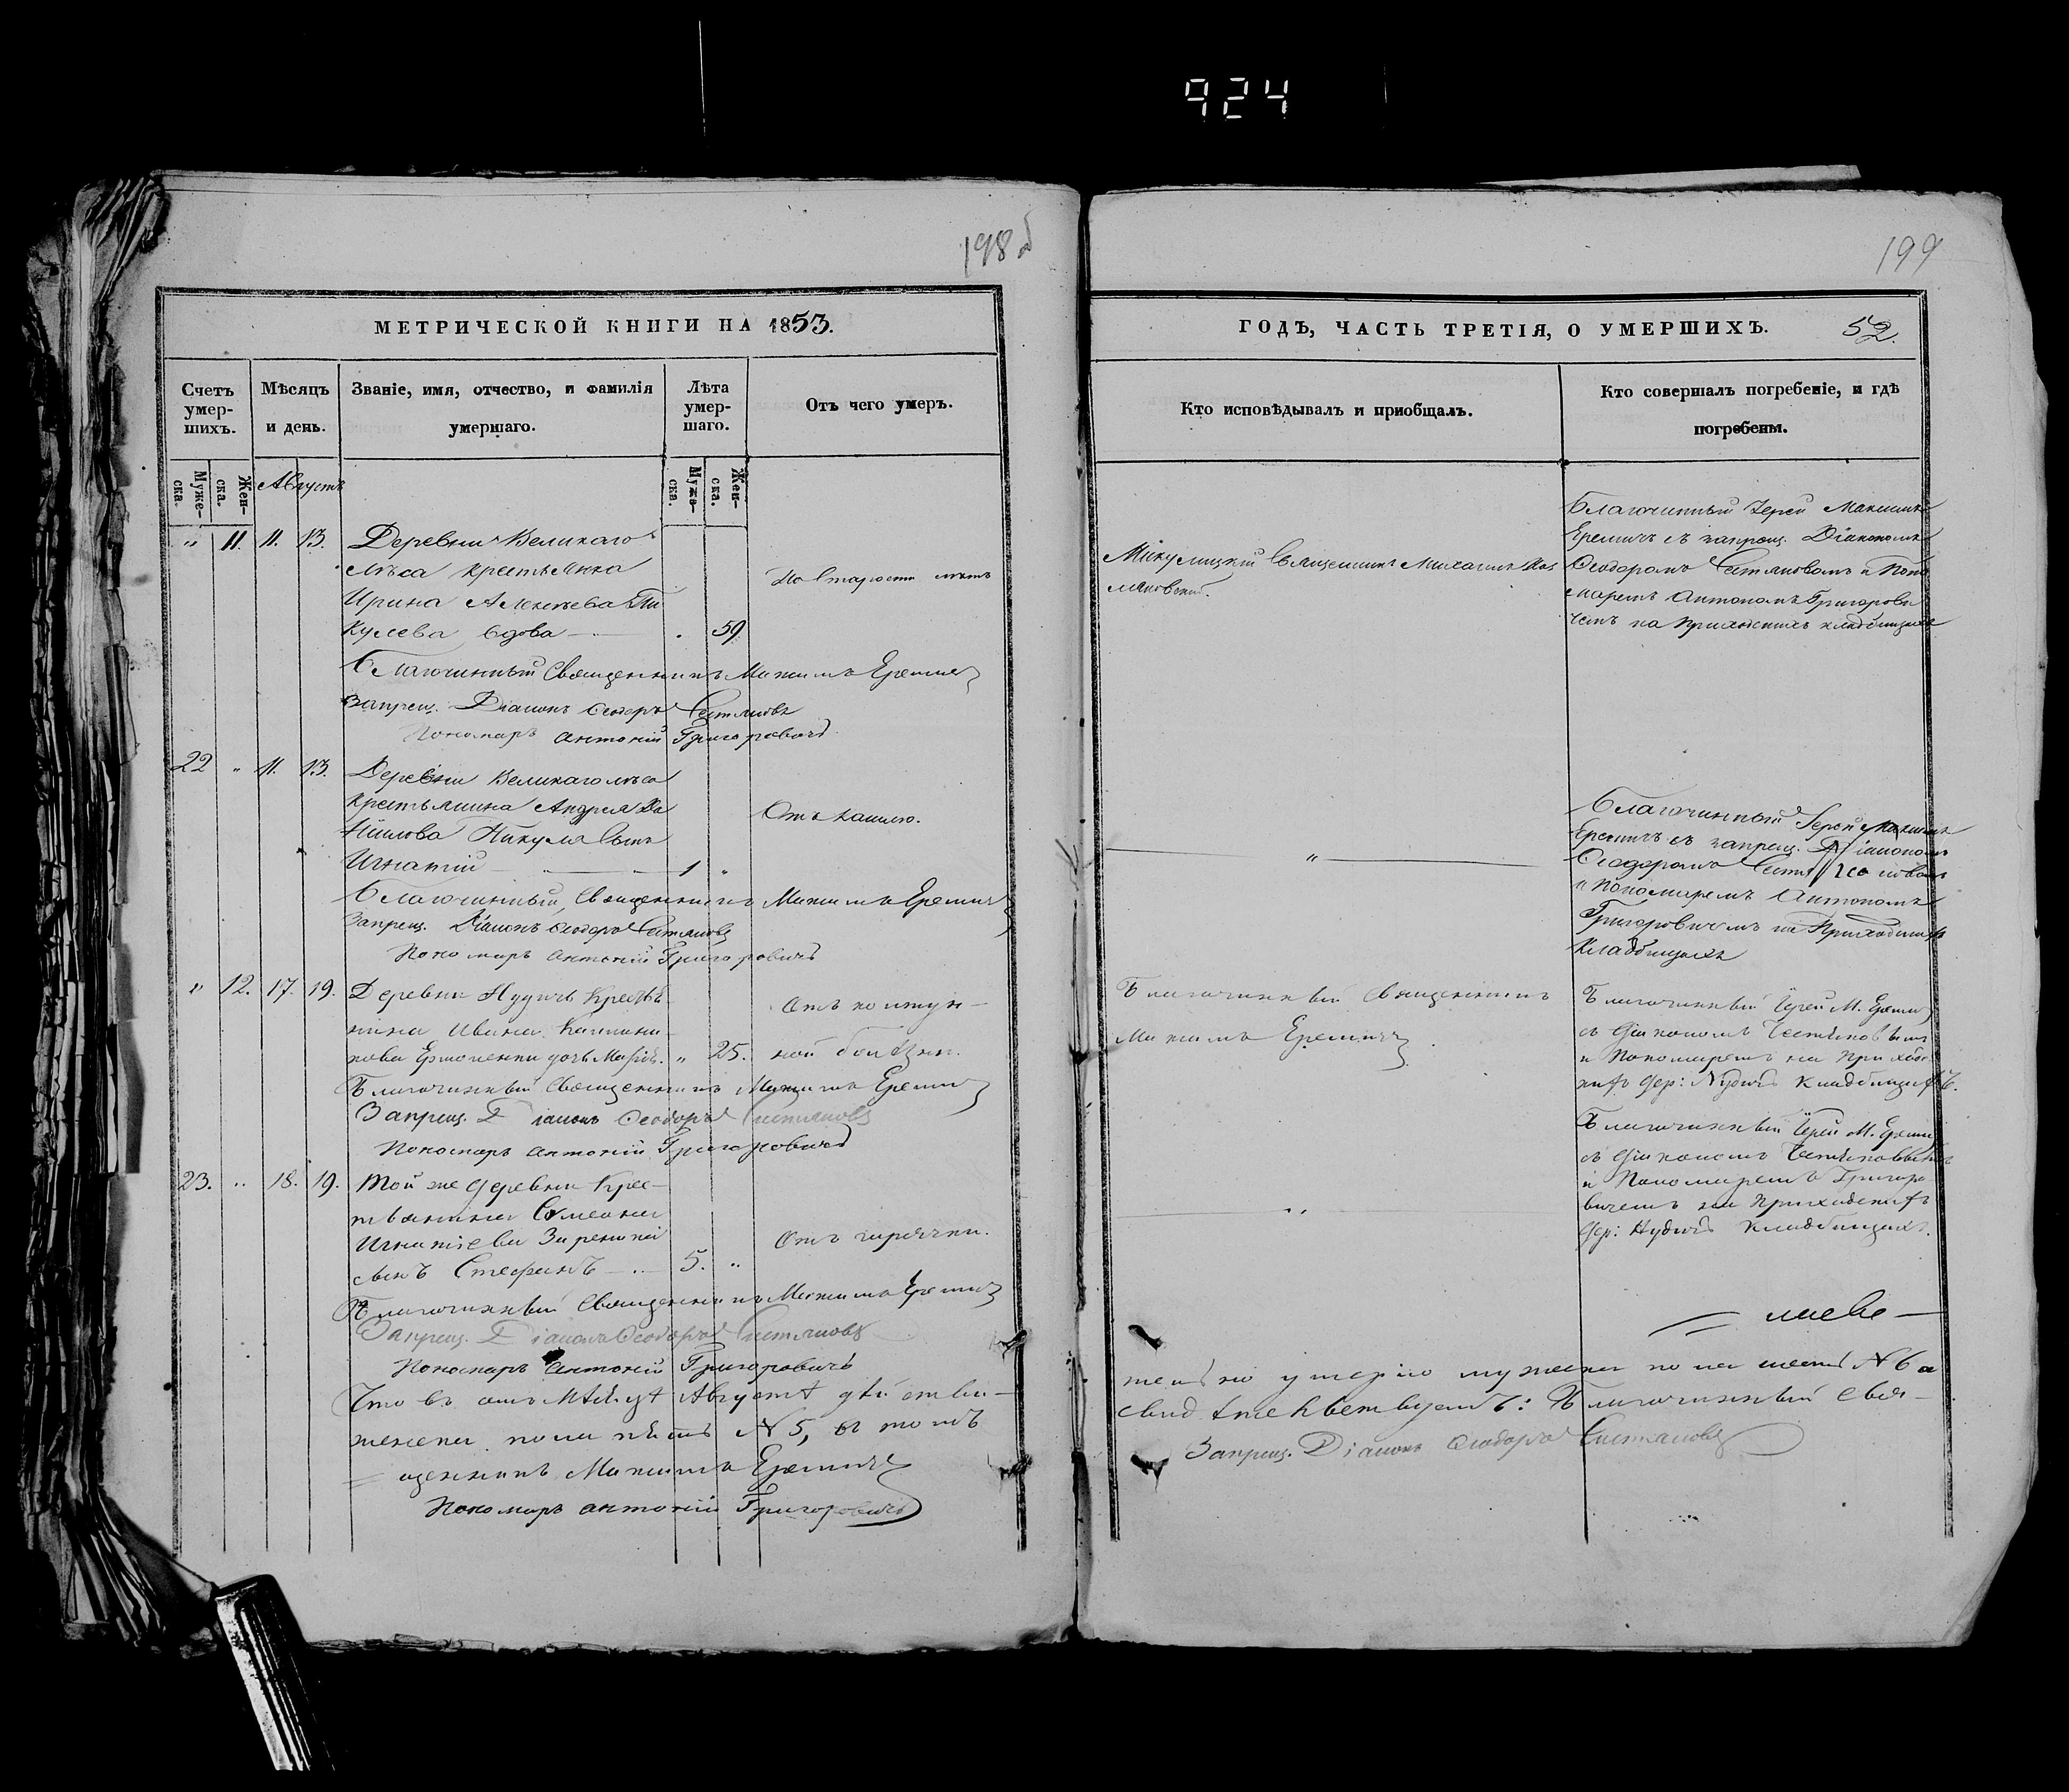 924
198 об
МЕТРИЧЕСКОЙ КНИГИ НА 1853.
Счетъ умер-шихъ.
Мѣсяцъ и день.
Званіе, имя, отчество, и фамилія умершаго.
Лѣта умер-шаго.
Отъ чего умеръ.
Муже-ска.
Жен-ска.
Августъ
Муже-ска.
Жен-ска.
" 11. 11. 13. Деревни Великаго
лѣса крестьянка
Ирина Алексѣева
По старости лѣтъ
вдова 59.
Благочинный Священникъ Максимъ Еремичъ
Запрещ. Діаконъ Ѳеодоръ
Пономарь Антоній Григоровичъ
22 " 11. 13. Деревни Великаго лѣса
Крестьянина Андрея Да
нилова Пикуля сынъ
Отъ кашлю.
Игнатій 1 "
Благочинный Священникъ Максимъ Еремичъ
Запрещ. Діаконъ Ѳеодоръ
Пономарь Антоній Григоровичъ
" 12. 17. 19. Деревни Нудичъ Крестья-
нина Ивана
дочь Марія. " 25.
ной болѣзни.
Благочинный Священникъ Максимъ Еремичъ
Запрещ. Діаконъ Ѳеодоръ
Пономарь Антоній Григоровичъ
23. " 18. 19. Той же деревни Крес-
тьянина Симеона
Игнатіева
Отъ горячки.
сынъ Стефанъ 5. "
Благочинный Священникъ Максимъ Еремичъ
Запрещ. Діаконъ Ѳеодоръ
Пономарь Антоній Григоровичъ
Что въ семъ Мѣсяцѣ Августѣ дѣйстви-
женска пола пять № 5, въ томъ
щенникъ Максимъ Еремичъ
Пономарь Антоній Григоровичъ
199
ГОДЪ, ЧАСТЬ ТРЕТІЯ, О УМЕРШИХЪ.
52.
Кто исповѣдывалъ и приобщалъ.
Кто совершалъ погребеніе, и гдѣ погребены.
Микулицкій Священникъ Михаилъ
Благочинный Іерей Максимъ
Еремичъ съ запрещ. Діакономъ
Ѳеодоромъ и Поно
маремъ Антономъ Григорови
чемъ на приходскихъ кладбищахъ
"
Благочинный Іерей Максимъ
Еремичъ съ запрещ. Діакономъ
Ѳеодоромъ
и Пономаремъ Антономъ
Григоровичемъ на Приходскихъ
Кладбищахъ
Благочинный Священникъ
Максимъ Еремичъ.
Благочинный Іерей М. Еремичъ
съ Діакономъ
и Пономаремъ на приход
дер: Нудичъ кладбищахъ.
"
Благочинный Іерей М. Еремичъ
съ Діакономъ
и Пономаремъ Григоро
вичемъ на приходскихъ
дер: Нудичъ Кладбищахъ.
тельно умерло мужеска пола шесть № 6 а
свидѣтельствуемъ: Благочинный Свя-
Запрещ. Діаконъ Ѳеодоръ